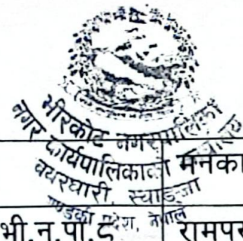 भीरकोट नगरपालिका
नगर कार्यपालिकाको कार्यालय
बयरघारी, स्याङ्जा
गण्डकी प्रदेश, नेपाल
मेनका
भी.न.पा.८ रामपुर